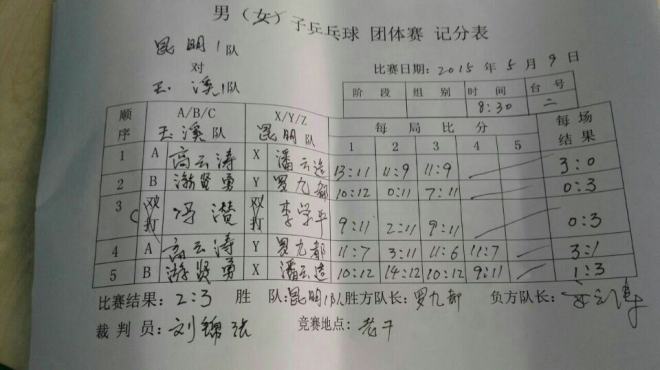 男（女）子乒乓球 团体赛 记分表
昆明1队
对
玉溪1队
比赛日期：2015年5月9日
阶段 组别 时间 台号
8:30 二
顺序 A/B/C 玉溪队 X/Y/Z 昆明队 每局比分 每场结果
1 2 3 4 5
1 A 高云涛 X 潘云造 13:11 11:9 11:9 3:0
2 B 游贤勇 Y 罗九都 10:12 0:11 7:11 0:3
3 C 双打 冯潜 双打 李学平 9:11 2:11 9:11 0:3
4 A 高云涛 Y 罗九都 11:7 3:11 11:6 11:7 3:1
5 B 游贤勇 X 潘云造 10:12 14:12 10:12 9:11 1:3
比赛结果：2:3 胜 队：昆明1队 胜方队长：罗九都 负方队长：
裁判员：刘锦张 竞赛地点：老干